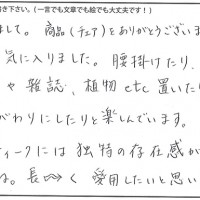 き下さい。(一言でも文章でも絵でも大丈夫です!)
まして。商品(チェア)をありがとうございま
気に入りました。腰掛けたり、
や雑誌、植物etc置いたり
がわりにしたりと楽しんでいます。
ティークには独特の存在感が
ね。長く愛用したいと思い